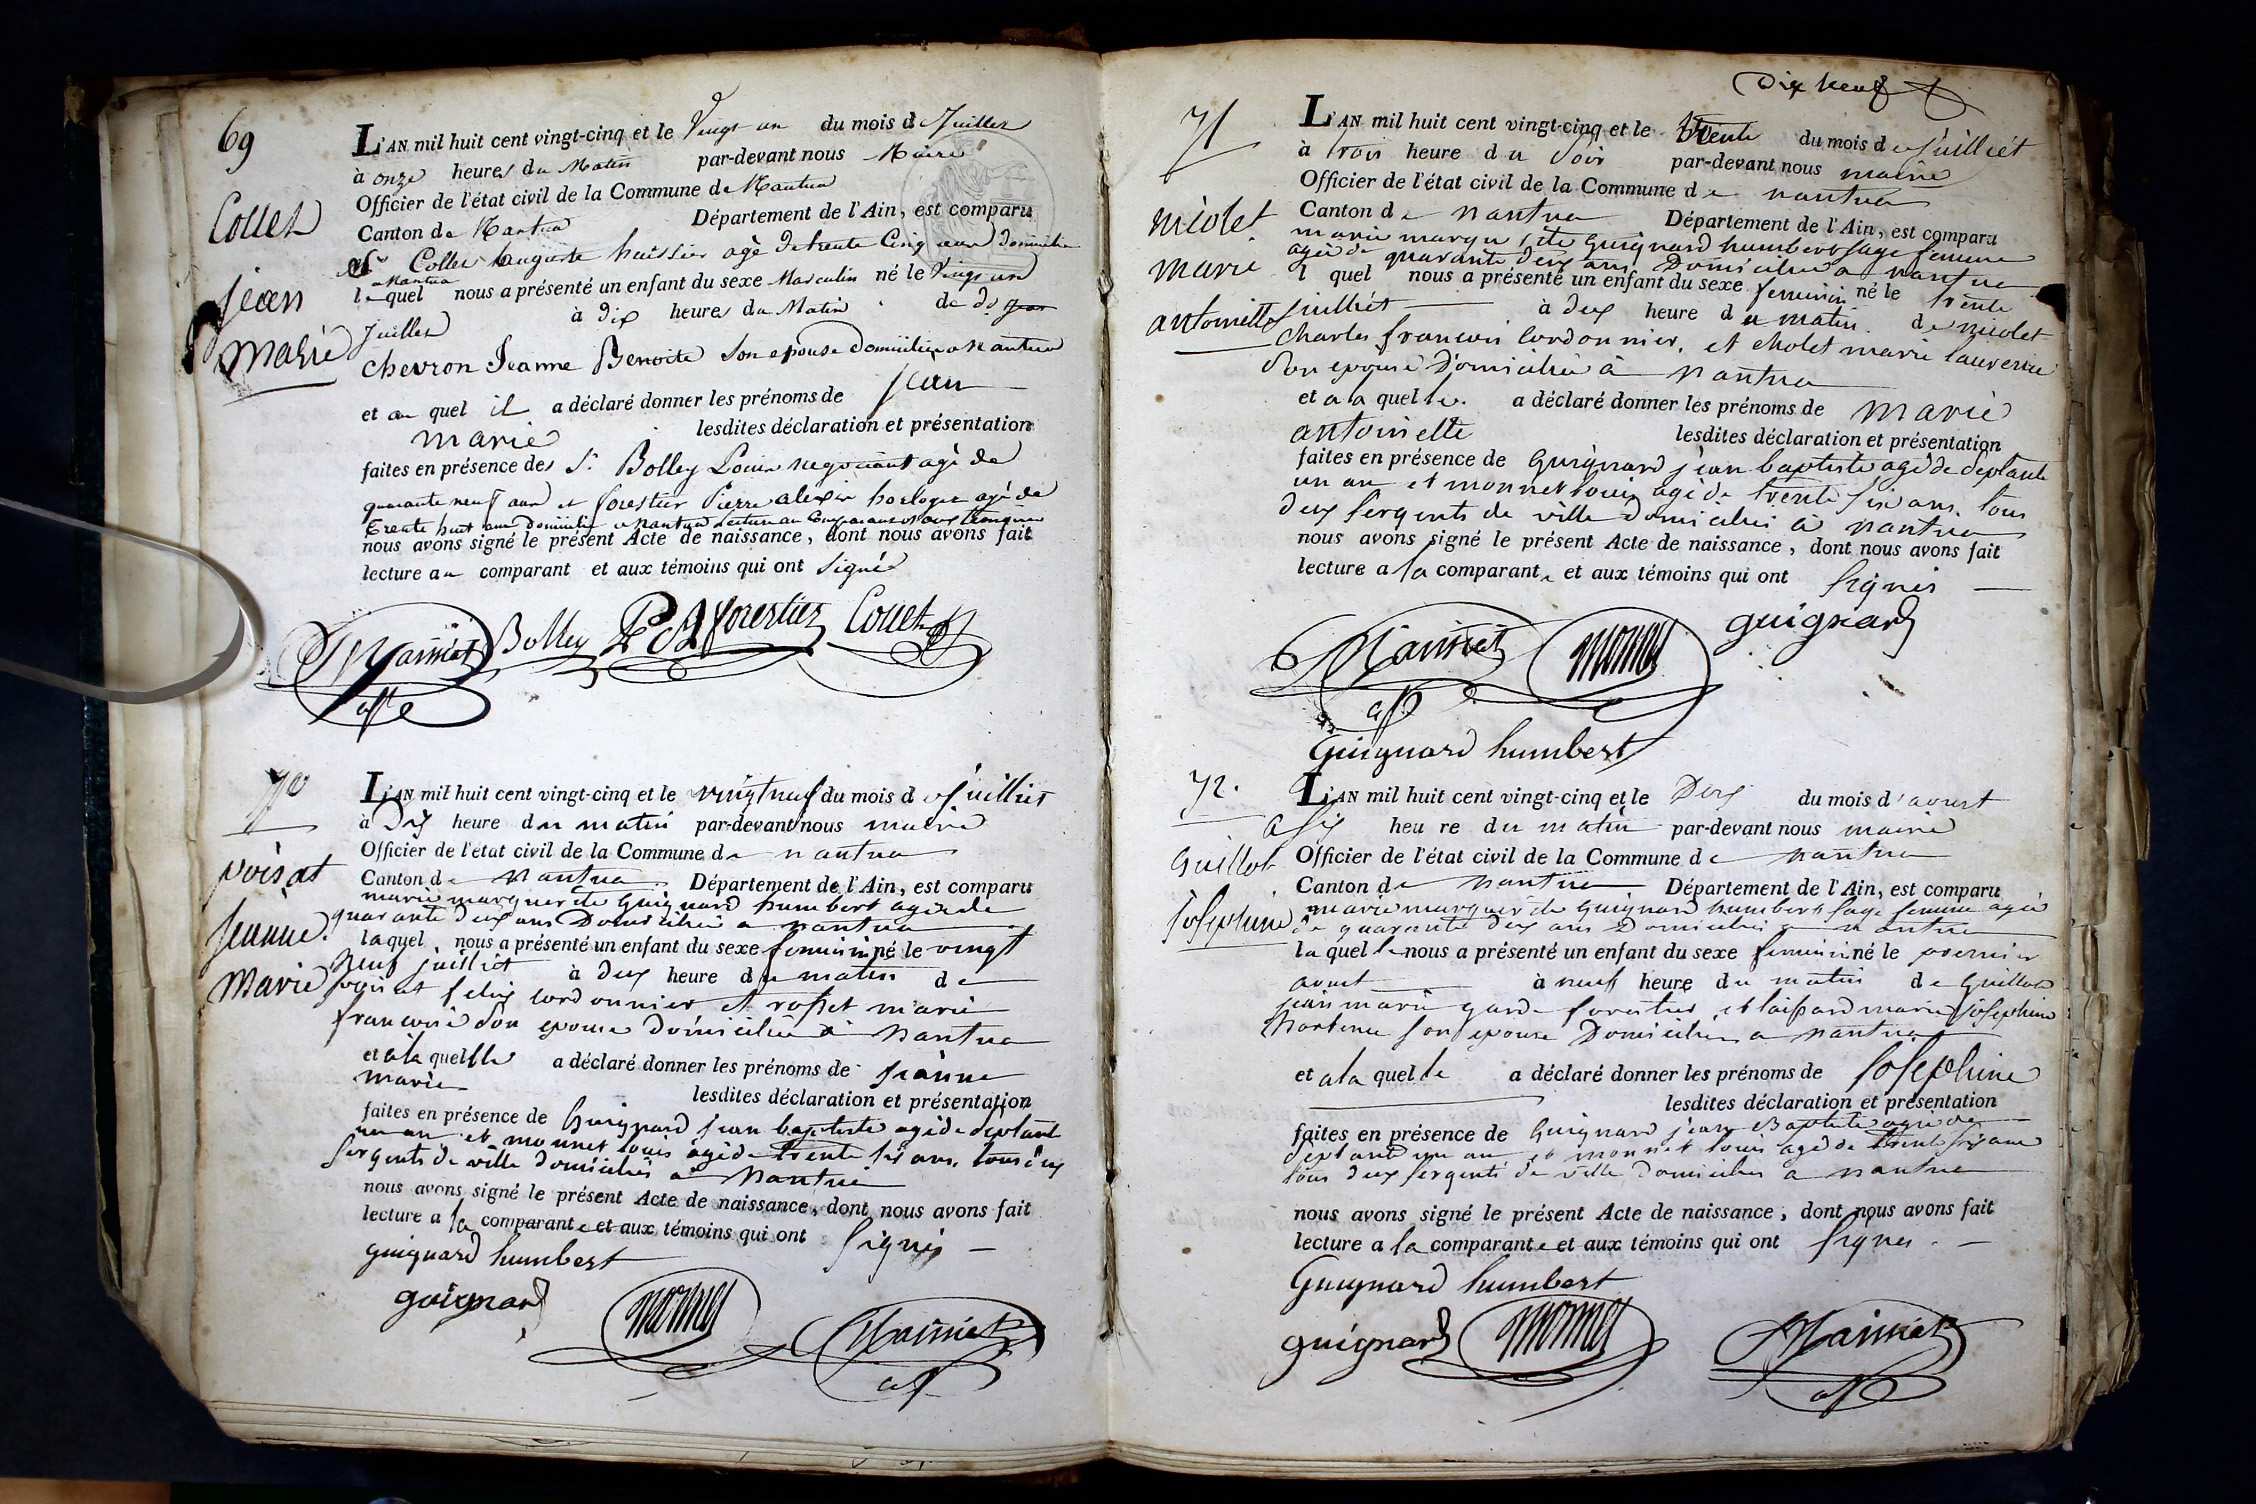 69
Collet
jean
marie
L'AN mil huit cent vingt-cinq et le Vingt un du mois de Juillet
à onze heures du Matin par-devant nous Maire
Officier de l'état civil de la Commune de Nantua
Canton de Nantua Département de l'Ain, est comparu
Sr Collet auguste huissier agé de trente Cinq ans domicilié
a Nantua
lequel nous a présenté un enfant du sexe Masculin né le Vingt un
Juillet à dix heures du Matin de
chevron Jeanne Benoite Son epouse domiciliée a Nantua
et au quel il a déclaré donner les prénoms de jean
marie lesdites déclaration et présentation
faites en présence des Sr Bolley Louis negociant agé de
quarante neuf ans et forestier Pierre alexis horloger agé de
Trente huit ans domicilié a Nantua Lecture au Comparant et aux temoins
nous avons signé le présent Acte de naissance, dont nous avons fait
lecture au comparant et aux témoins qui ont Signé
Bolley P A forestier Collet
70
poisat
jeanne
marie
L'AN mil huit cent vingt-cinq et le vingt neuf du mois de juilliet
à Dix heure du matin par-devant nous maire
Officier de l'état civil de la Commune de nantua
Canton de nantua Département de l'Ain, est comparu
marie marguerite Guignard humbert agée de
quarante deux ans Domiciliée a nantua
laquel nous a présenté un enfant du sexe feminin né le vingt
neuf juilliet à deux heure du matin de
poisat felix cordonnier et rosset marie
francoise son epouse domiciliée a nantua
et a la quelle a déclaré donner les prénoms de jeanne
marie lesdites déclaration et présentation
faites en présence de Guignard jean baptiste agé de septante
un an et monnet louis agé de trente six ans. tous deux
sergents de ville domiciliés a nantua
nous avons signé le présent Acte de naissance, dont nous avons fait
lecture a la comparante et aux témoins qui ont signés
guignard humbert
guignard monnet
Dix neuf
71
nicolet
marie
antoinette
L'AN mil huit cent vingt-cinq et le trente du mois de juilliet
à trois heure du soir par-devant nous maire
Officier de l'état civil de la Commune de nantua
Canton de nantua Département de l'Ain, est comparu
marie marguerite Guignard humbert sage femme
agée de quarante deux ans Domiciliée a nantua
l quel nous a présenté un enfant du sexe feminin né le trente
juilliet à deux heure du matin de nicolet
Charles francois cordonnier, et cholet marie laurence
son epouse Domiciliée à nantua
et a la quelle a déclaré donner les prénoms de marie
antoinette lesdites déclaration et présentation
faites en présence de Guignard jean baptiste agé de septante
un an et monnet louis agé de trente six ans. tous
deux sergents de ville domiciliés à nantua
nous avons signé le présent Acte de naissance, dont nous avons fait
lecture a la comparante et aux témoins qui ont signés
monnet guignard
Guignard humbert
72.
Guillot
josephine
L'AN mil huit cent vingt-cinq et le Deux du mois d'aoust
a six heure du matin par-devant nous maire
Officier de l'état civil de la Commune de nantua
Canton de nantua Département de l'Ain, est comparu
marie marguerite Guignard humbert sage femme agée
de quarante deux ans Domiciliée a nantua
la quelle nous a présenté un enfant du sexe feminin né le premier
aoust à neuf heure du matin de Guillot
jean marie garde forestier, et marie josephine
son epouse Domiciliée a nantua
et a la quelle a déclaré donner les prénoms de josephine
lesdites déclaration et présentation
faites en présence de Guignard jean Baptiste agé de
septante un an et monnet louis agé de trente six ans
tous deux sergents de ville Domiciliés a nantua
nous avons signé le présent Acte de naissance, dont nous avons fait
lecture a la comparante et aux témoins qui ont signés
Guignard humbert
guignard monnet